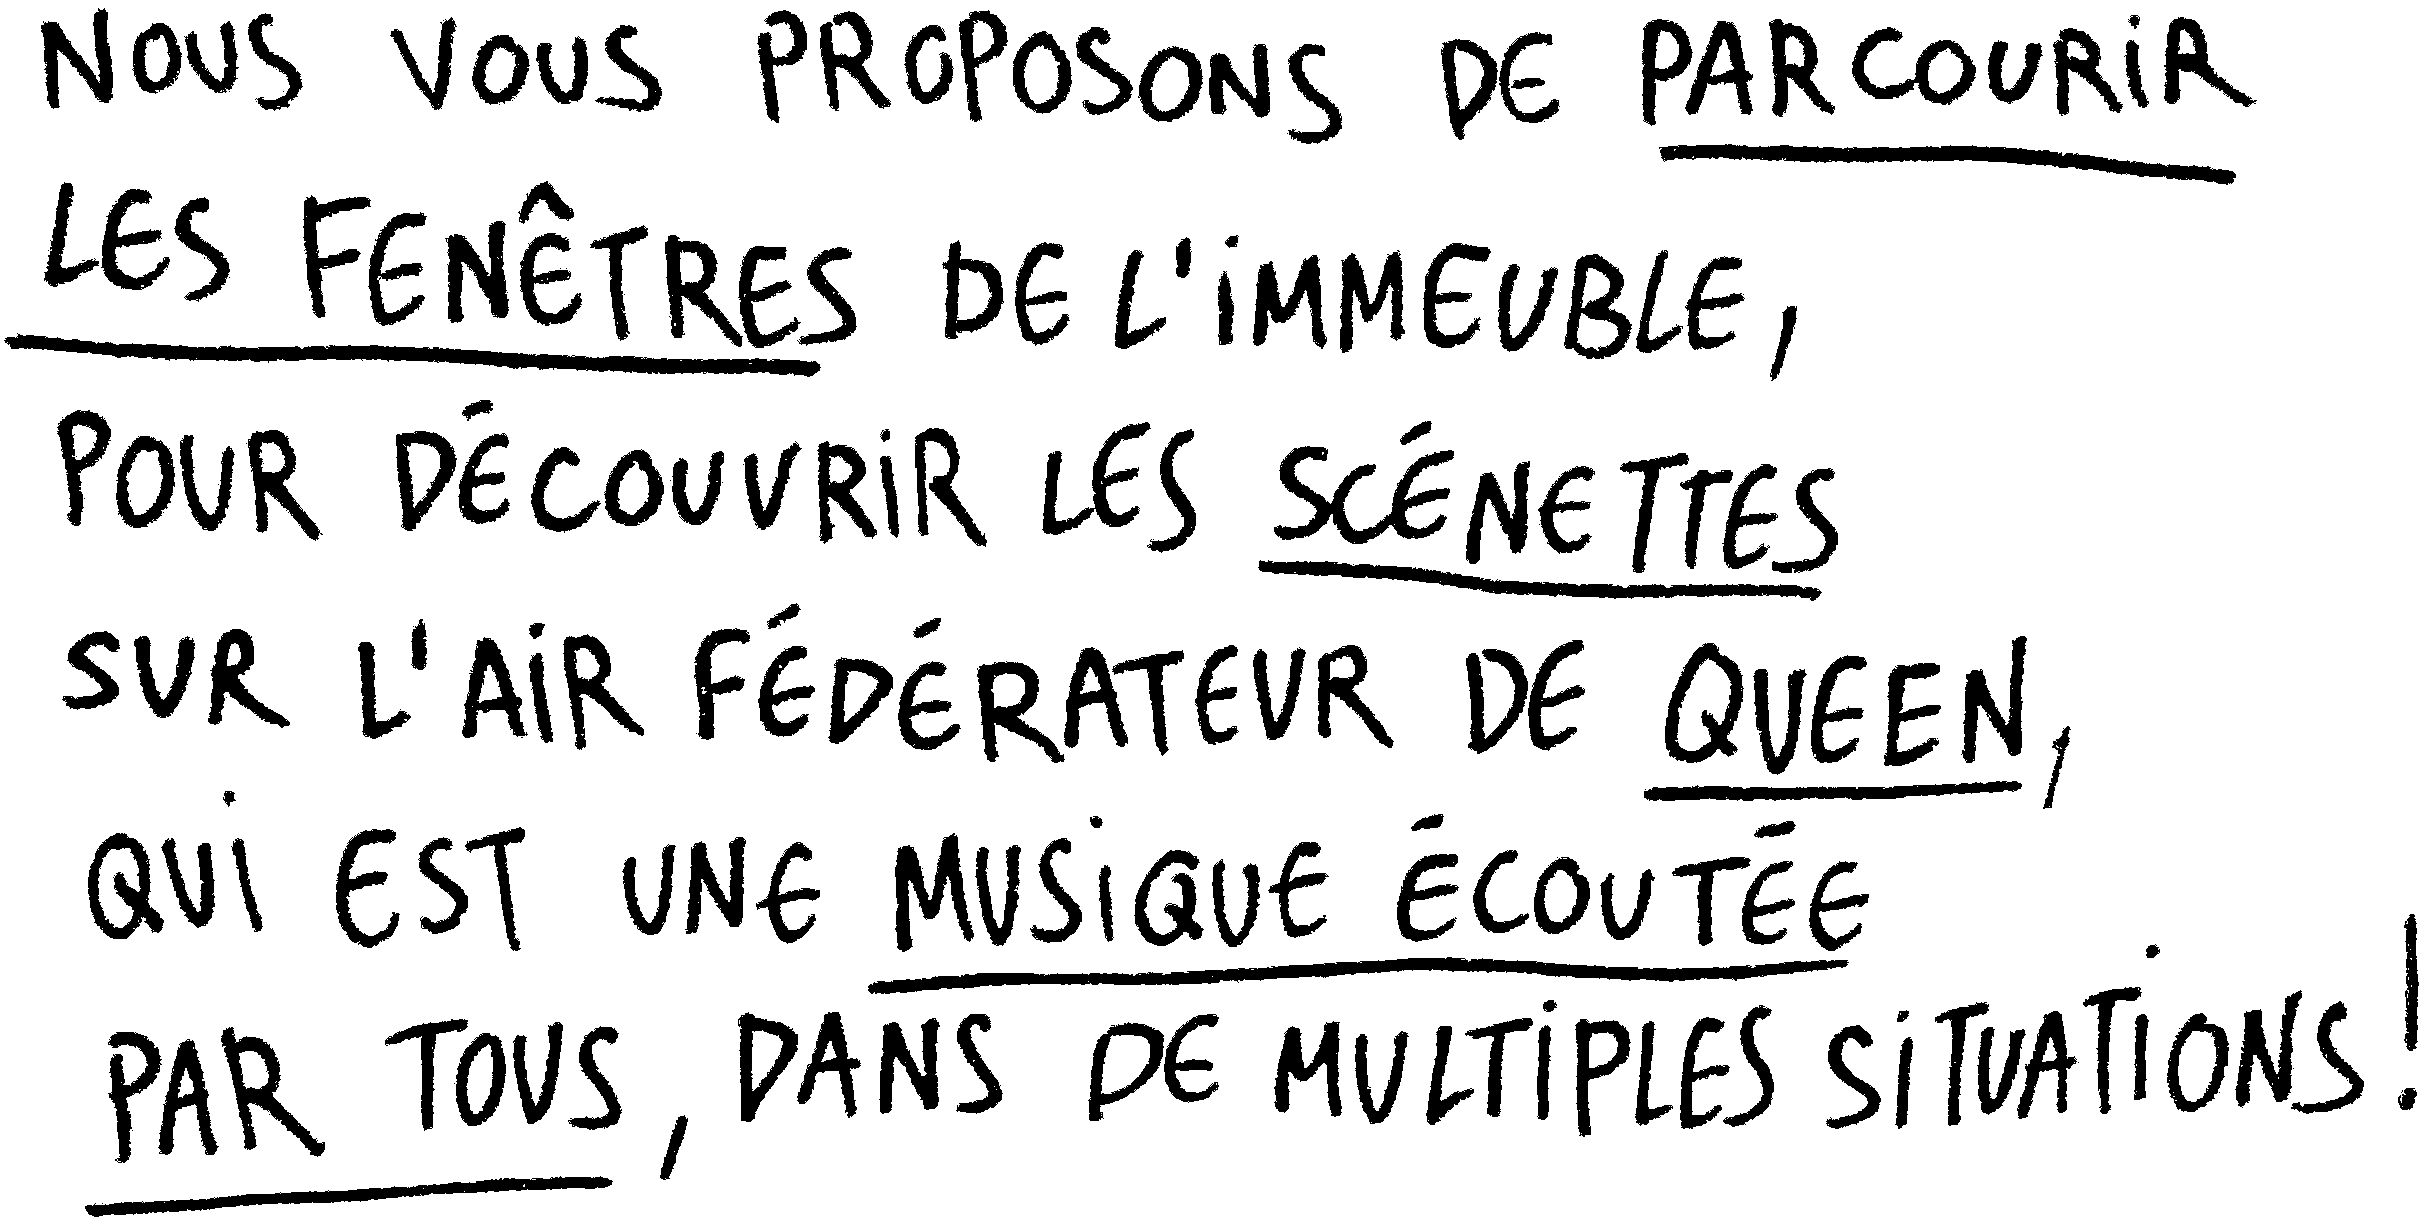 NOUS VOUS PROPOSONS DE PARCOURIR
LES FENÊTRES DE L'IMMEUBLE,
POUR DÉCOUVRIR LES SCÉNETTES
SUR L'AIR FÉDÉRATEUR DE QUEEN,
QUI EST UNE MUSIQUE ÉCOUTÉE
PAR TOUS, DANS DE MULTIPLES SITUATIONS!